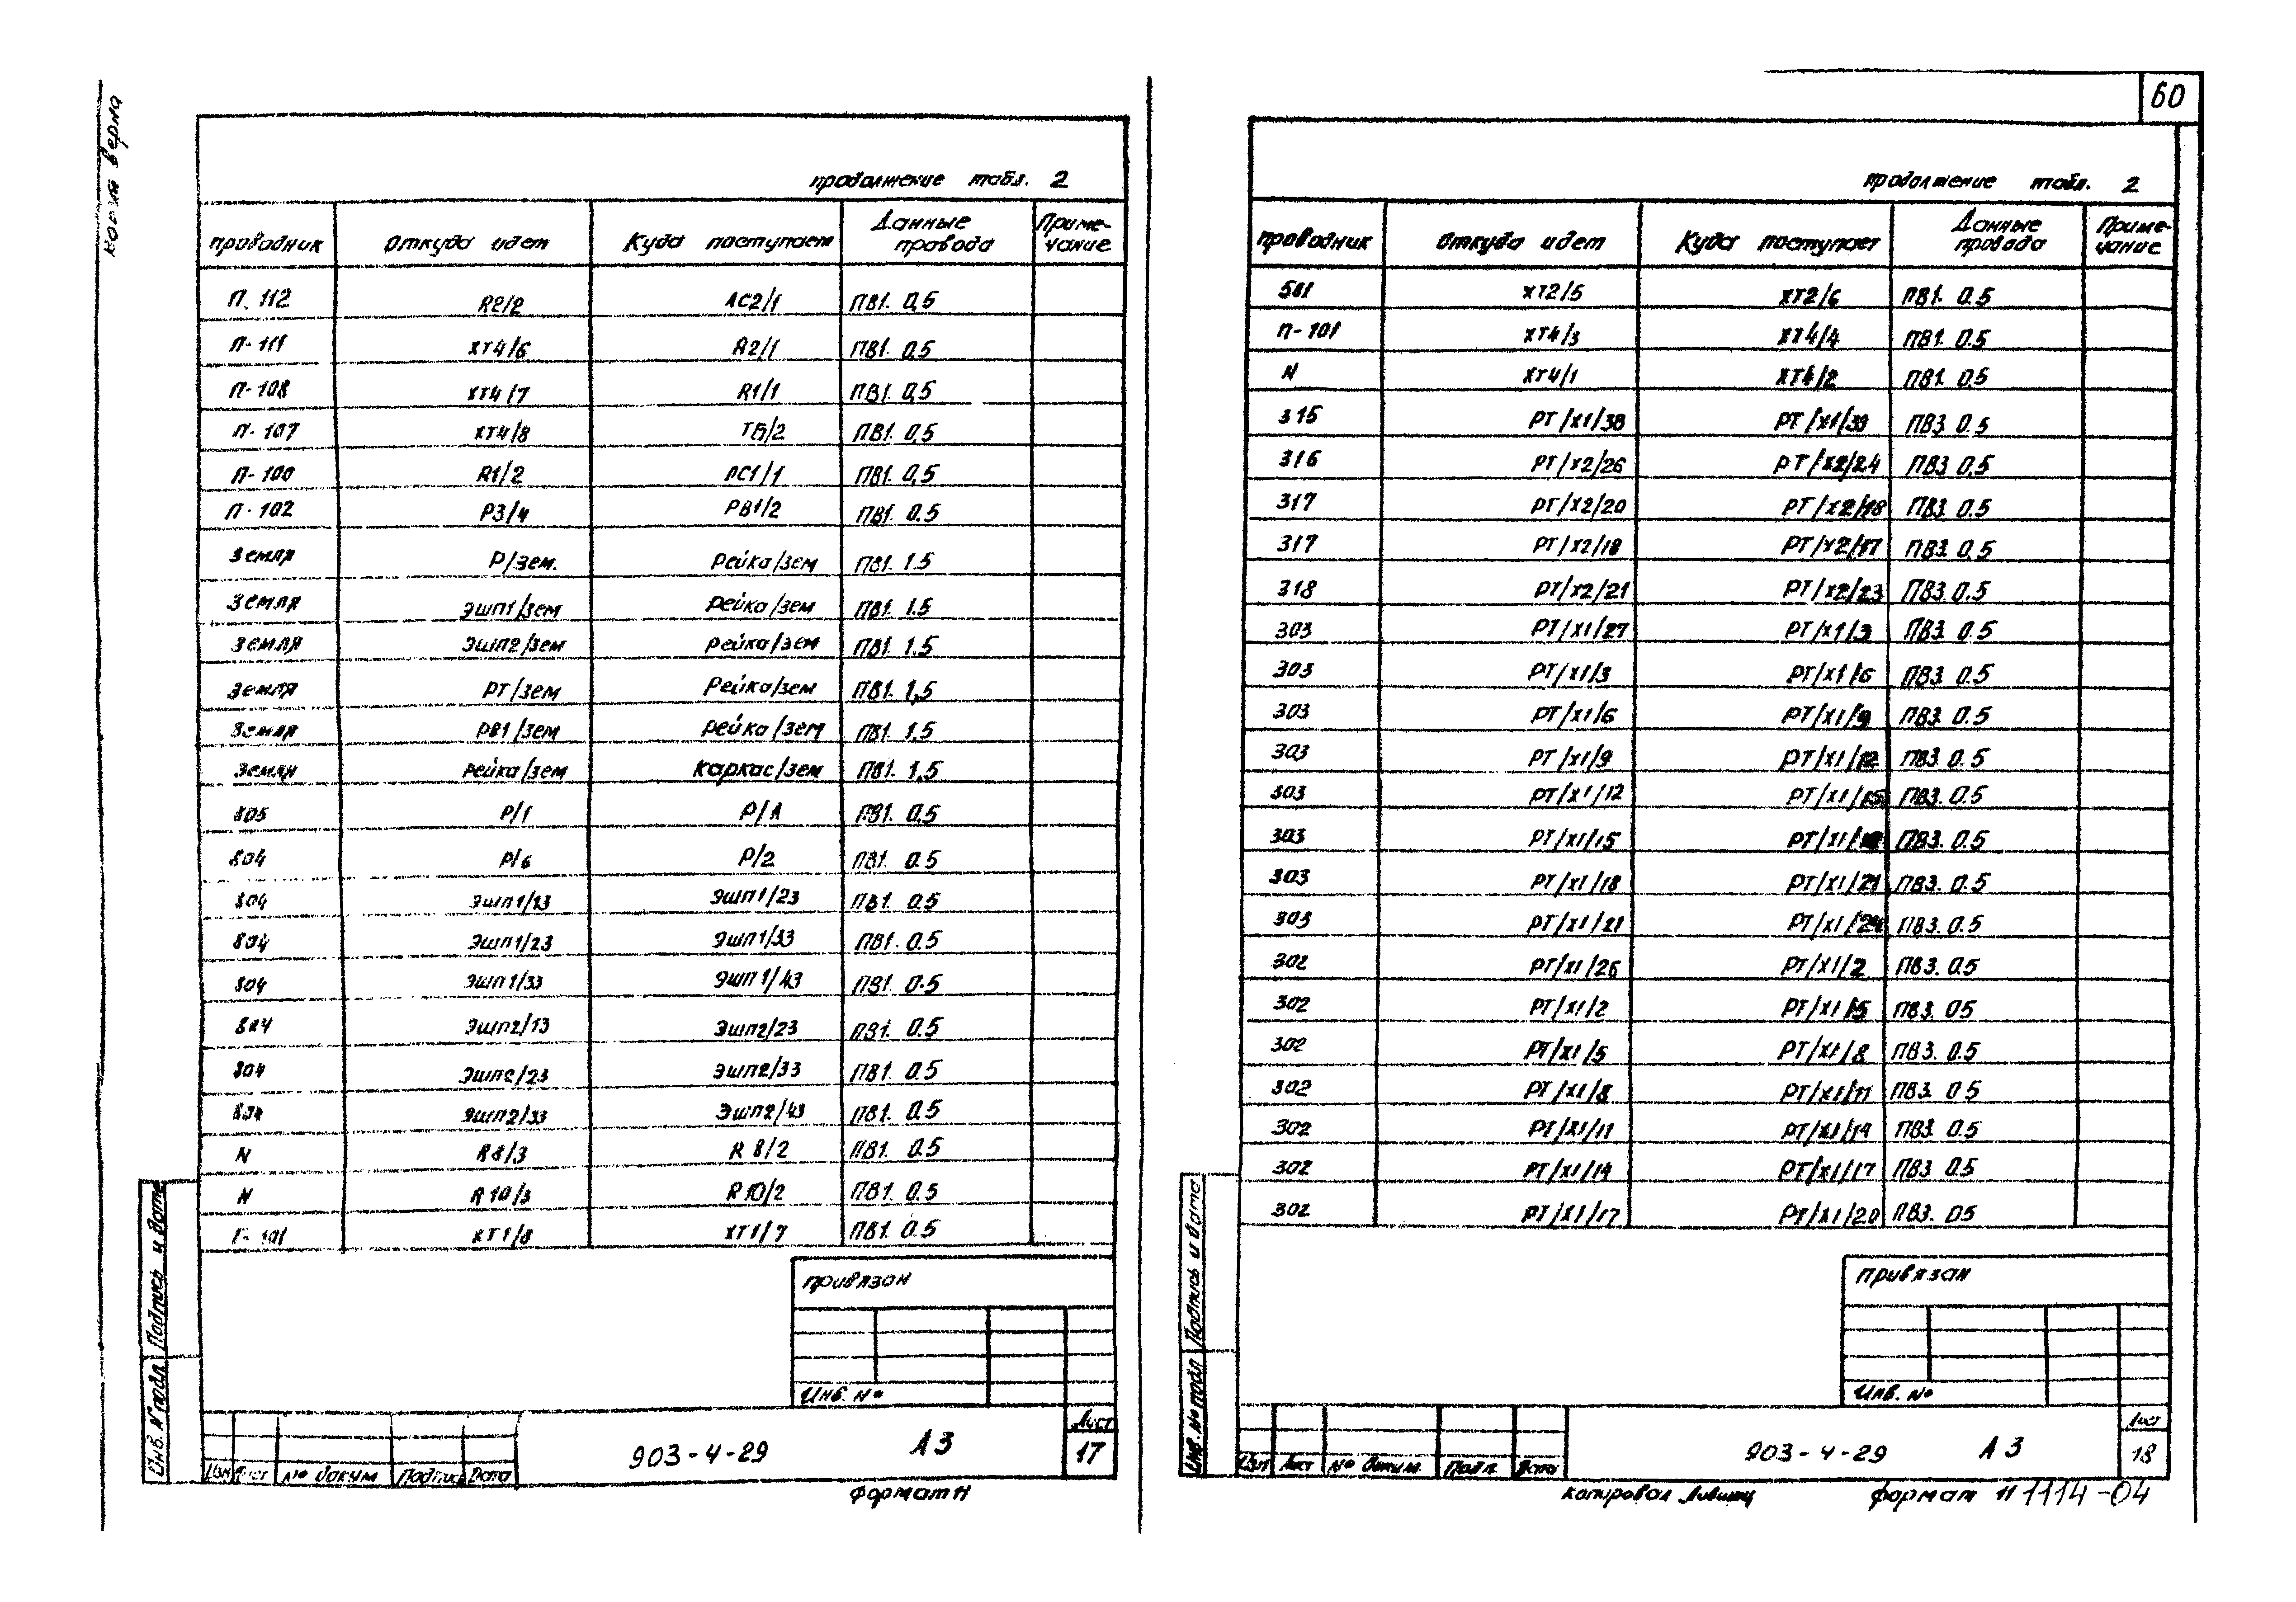 60
Копия верна
продолжение табл. 2
проводник Откуда идет Куда поступает Данные провода Примечание
П. 112 R2/2 ДС2/1 ПВ1. 0,5
П-111 ХТ4/6 R2/1 ПВ1. 0.5
П-108 ХТ4/7 R1/1 ПВ1. 0,5
П-107 ХТ4/8 ТБ/2 ПВ1. 0,5
П-100 R1/2 ДС1/1 ПВ1. 0,5
П-102 Р3/4 РВ1/2 ПВ1. 0.5
Земля Р/зем. Рейка/зем ПВ1. 1.5
Земля ЭШП1/зем Рейка/зем ПВ1. 1.5
Земля ЭШП2/зем Рейка/зем ПВ1. 1.5
Земля РТ/зем Рейка/зем ПВ1. 1,5
Земля РВ1/зем Рейка/зем ПВ1. 1,5
Земля Рейка/зем Каркас/зем ПВ1. 1,5
805 Р/1 Р/А ПВ1. 0,5
804 Р/6 Р/2 ПВ1. 0.5
804 ЭШП1/13 ЭШП1/23 ПВ1. 0.5
804 ЭШП1/23 ЭШП1/33 ПВ1. 0.5
804 ЭШП1/33 ЭШП1/43 ПВ1. 0.5
804 ЭШП2/13 ЭШП2/23 ПВ1. 0.5
804 ЭШП2/23 ЭШП2/33 ПВ1. 0.5
804 ЭШП2/33 ЭШП2/43 ПВ1. 0.5
N R8/3 R8/2 ПВ1. 0.5
N R10/3 R10/2 ПВ1. 0.5
П-101 ХТ1/8 ХТ1/7 ПВ1. 0.5
привязан
Инв. №
Инв. № подл Подпись и дата
Изм Лист № докум Подпись Дата
903-4-29 А3
Лист
17
Формат 11
продолжение табл. 2
проводник Откуда идет Куда поступает Данные провода Примечание
501 ХТ2/5 ХТ2/6 ПВ1. 0.5
П-101 ХТ4/3 ХТ4/4 ПВ1. 0.5
N ХТ4/1 ХТ4/2 ПВ1. 0.5
315 РТ/Х1/38 РТ/Х1/39 ПВ3. 0.5
316 РТ/Х2/26 РТ/Х2/24 ПВ3 0,5
317 РТ/Х2/20 РТ/Х2/18 ПВ3. 0.5
317 РТ/Х2/18 РТ/Х2/17 ПВ3. 0,5
318 РТ/Х2/21 РТ/Х2/23 ПВ3. 0.5
303 РТ/Х1/27 РТ/Х1/3 ПВ3. 0.5
303 РТ/Х1/3 РТ/Х1/6 ПВ3. 0.5
303 РТ/Х1/6 РТ/Х1/9 ПВ3. 0.5
303 РТ/Х1/9 РТ/Х1/12 ПВ3. 0.5
303 РТ/Х1/12 РТ/Х1/15 ПВ3. 0.5
303 РТ/Х1/15 РТ/Х1/18 ПВ3. 0.5
303 РТ/Х1/18 РТ/Х1/21 ПВ3. 0.5
303 РТ/Х1/21 РТ/Х1/24 ПВ3. 0.5
302 РТ/Х1/26 РТ/Х1/2 ПВ3. 0.5
302 РТ/Х1/2 РТ/Х1/5 ПВ3. 05
302 РТ/Х1/5 РТ/Х1/8 ПВ3. 0.5
302 РТ/Х1/8 РТ/Х1/11 ПВ3. 0 5
302 РТ/Х1/11 РТ/Х1/14 ПВ3. 0.5
302 РТ/Х1/14 РТ/Х1/17 ПВ3 0.5
302 РТ/Х1/17 РТ/Х1/20 ПВ3. 05
Привязан
Инв. №
Инв. № подл Подпись и дата
Изм Лист № докум. Подп. Дата
903-4-29 А3
Лист
18
Копировал Формат 11 1114-04